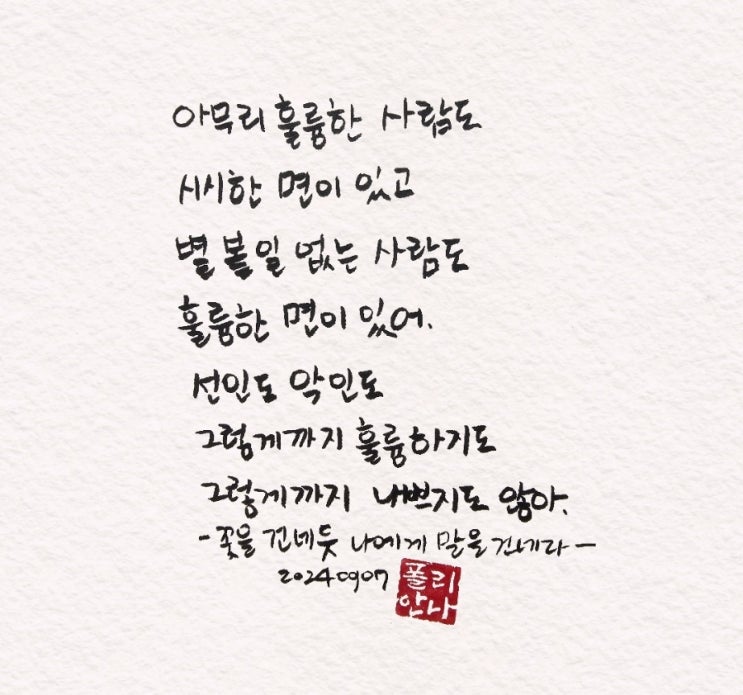 아무리 훌륭한 사람도
시시한 면이 있고
별 볼일 없는 사람도
훌륭한 면이 있어.
선인도 악인도
그렇게까지 훌륭하기도
그렇게까지 나쁘지도 않아.
-꽃을 건네듯 나에게 말을 건네다-
20240907
폴리
안나